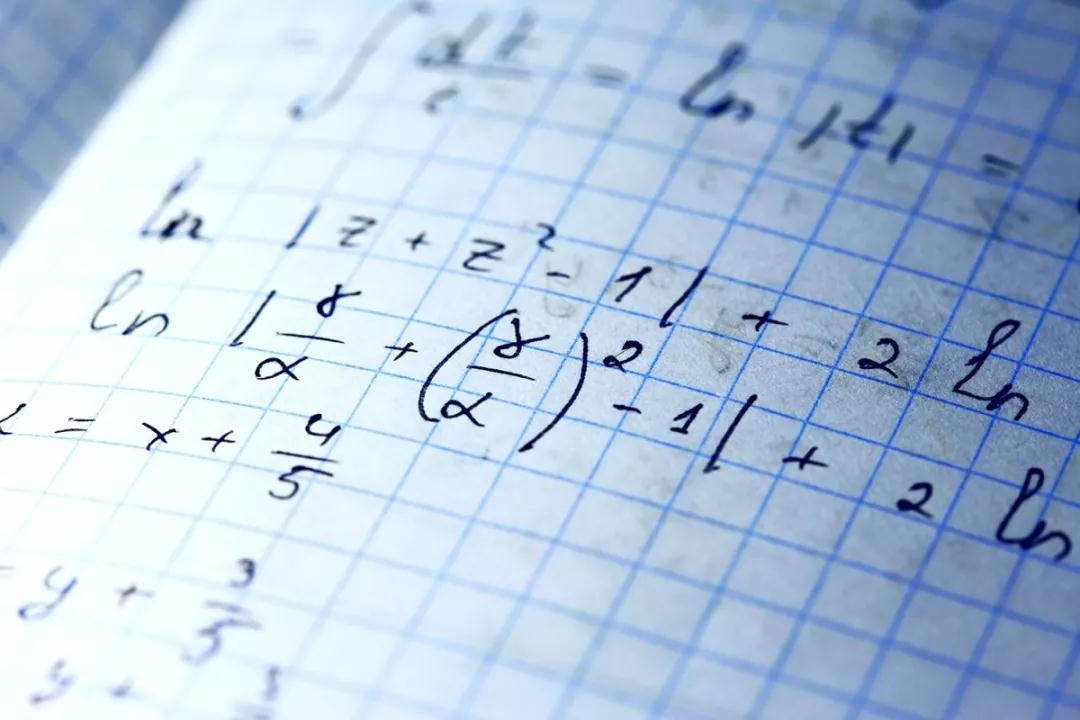 = ∫ dt/t = ln |t| =
ln |z + z² - 1| + 2 ln
ln |γ/α + (γ/α)² - 1| + 2 ln
= x + 4/5
= y + 3/5
y +